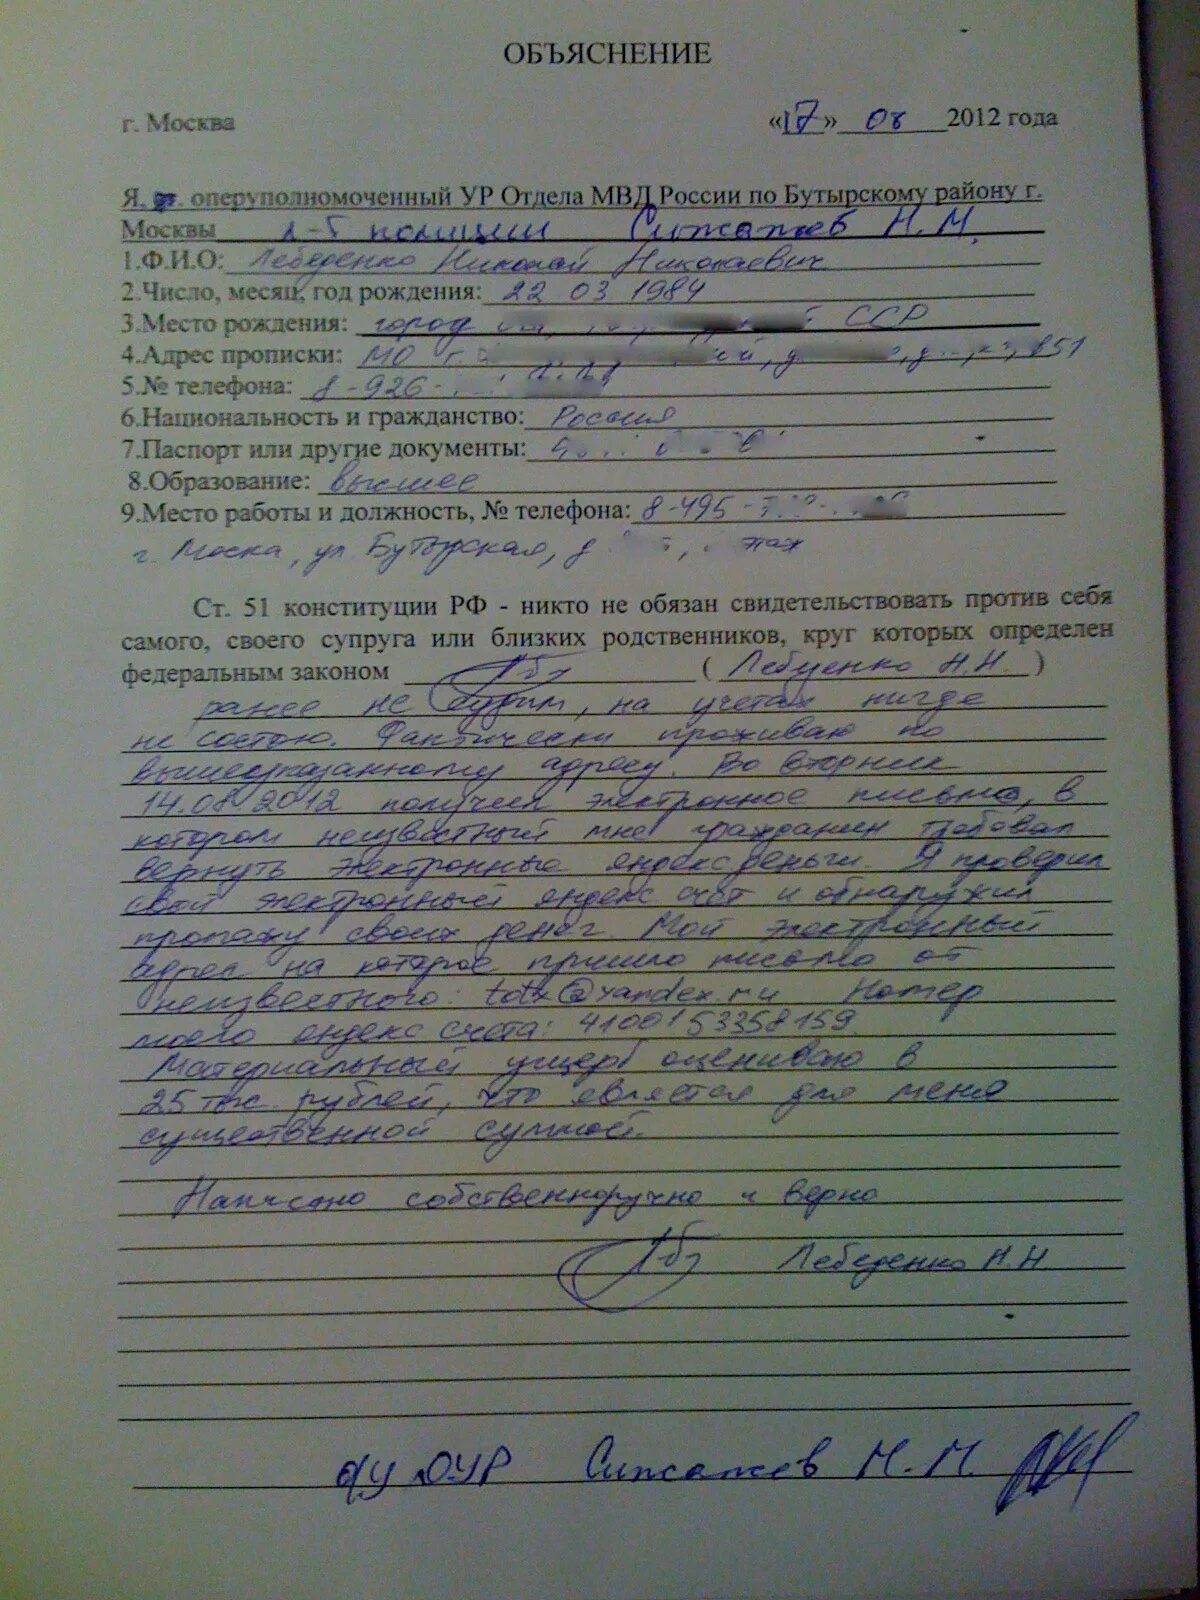 ОБЪЯСНЕНИЕ
г. Москва «17» 08 2012 года
Я, оперуполномоченный УР Отдела МВД России по Бутырскому району г.
Москвы л-т полиции
1.Ф.И.О: Лебеденко Николай Николаевич
2.Число, месяц, год рождения: 22 03 1984
3.Место рождения: город ССР
4.Адрес прописки: МО г. 151
5.№ телефона: 8-926-
6.Национальность и гражданство: Россия
7.Паспорт или другие документы:
8.Образование: высшее
9.Место работы и должность, № телефона: 8-495-
г. Моска, ул Бутырская, д этаж
Ст. 51 конституции РФ - никто не обязан свидетельствовать против себя
самого, своего супруга или близких родственников, круг которых определен
федеральным законом (Лебеденко Н.Н.)
ранее не судим, на учетах нигде
не состою. Фактически проживаю по
вышеуказанному адресу. Во вторник
14.08.2012 получил электронное письмо, в
котором неизвестный мне гражданин требовал
вернуть электронные яндекс деньги. Я проверил
свой электронный яндекс счет и обнаружил
пропажу своих денег. Мой электронный
адрес на которое пришло письмо от
неизвестного: totx@yandex.ru Номер
моего яндекс счета: 41001153358159
Материальный ущерб оцениваю в
25 тыс. рублей, что является для меня
существенной суммой.
Написано собственноручно и верно
Лебеденко Н.Н
о/у ОУР М.М.